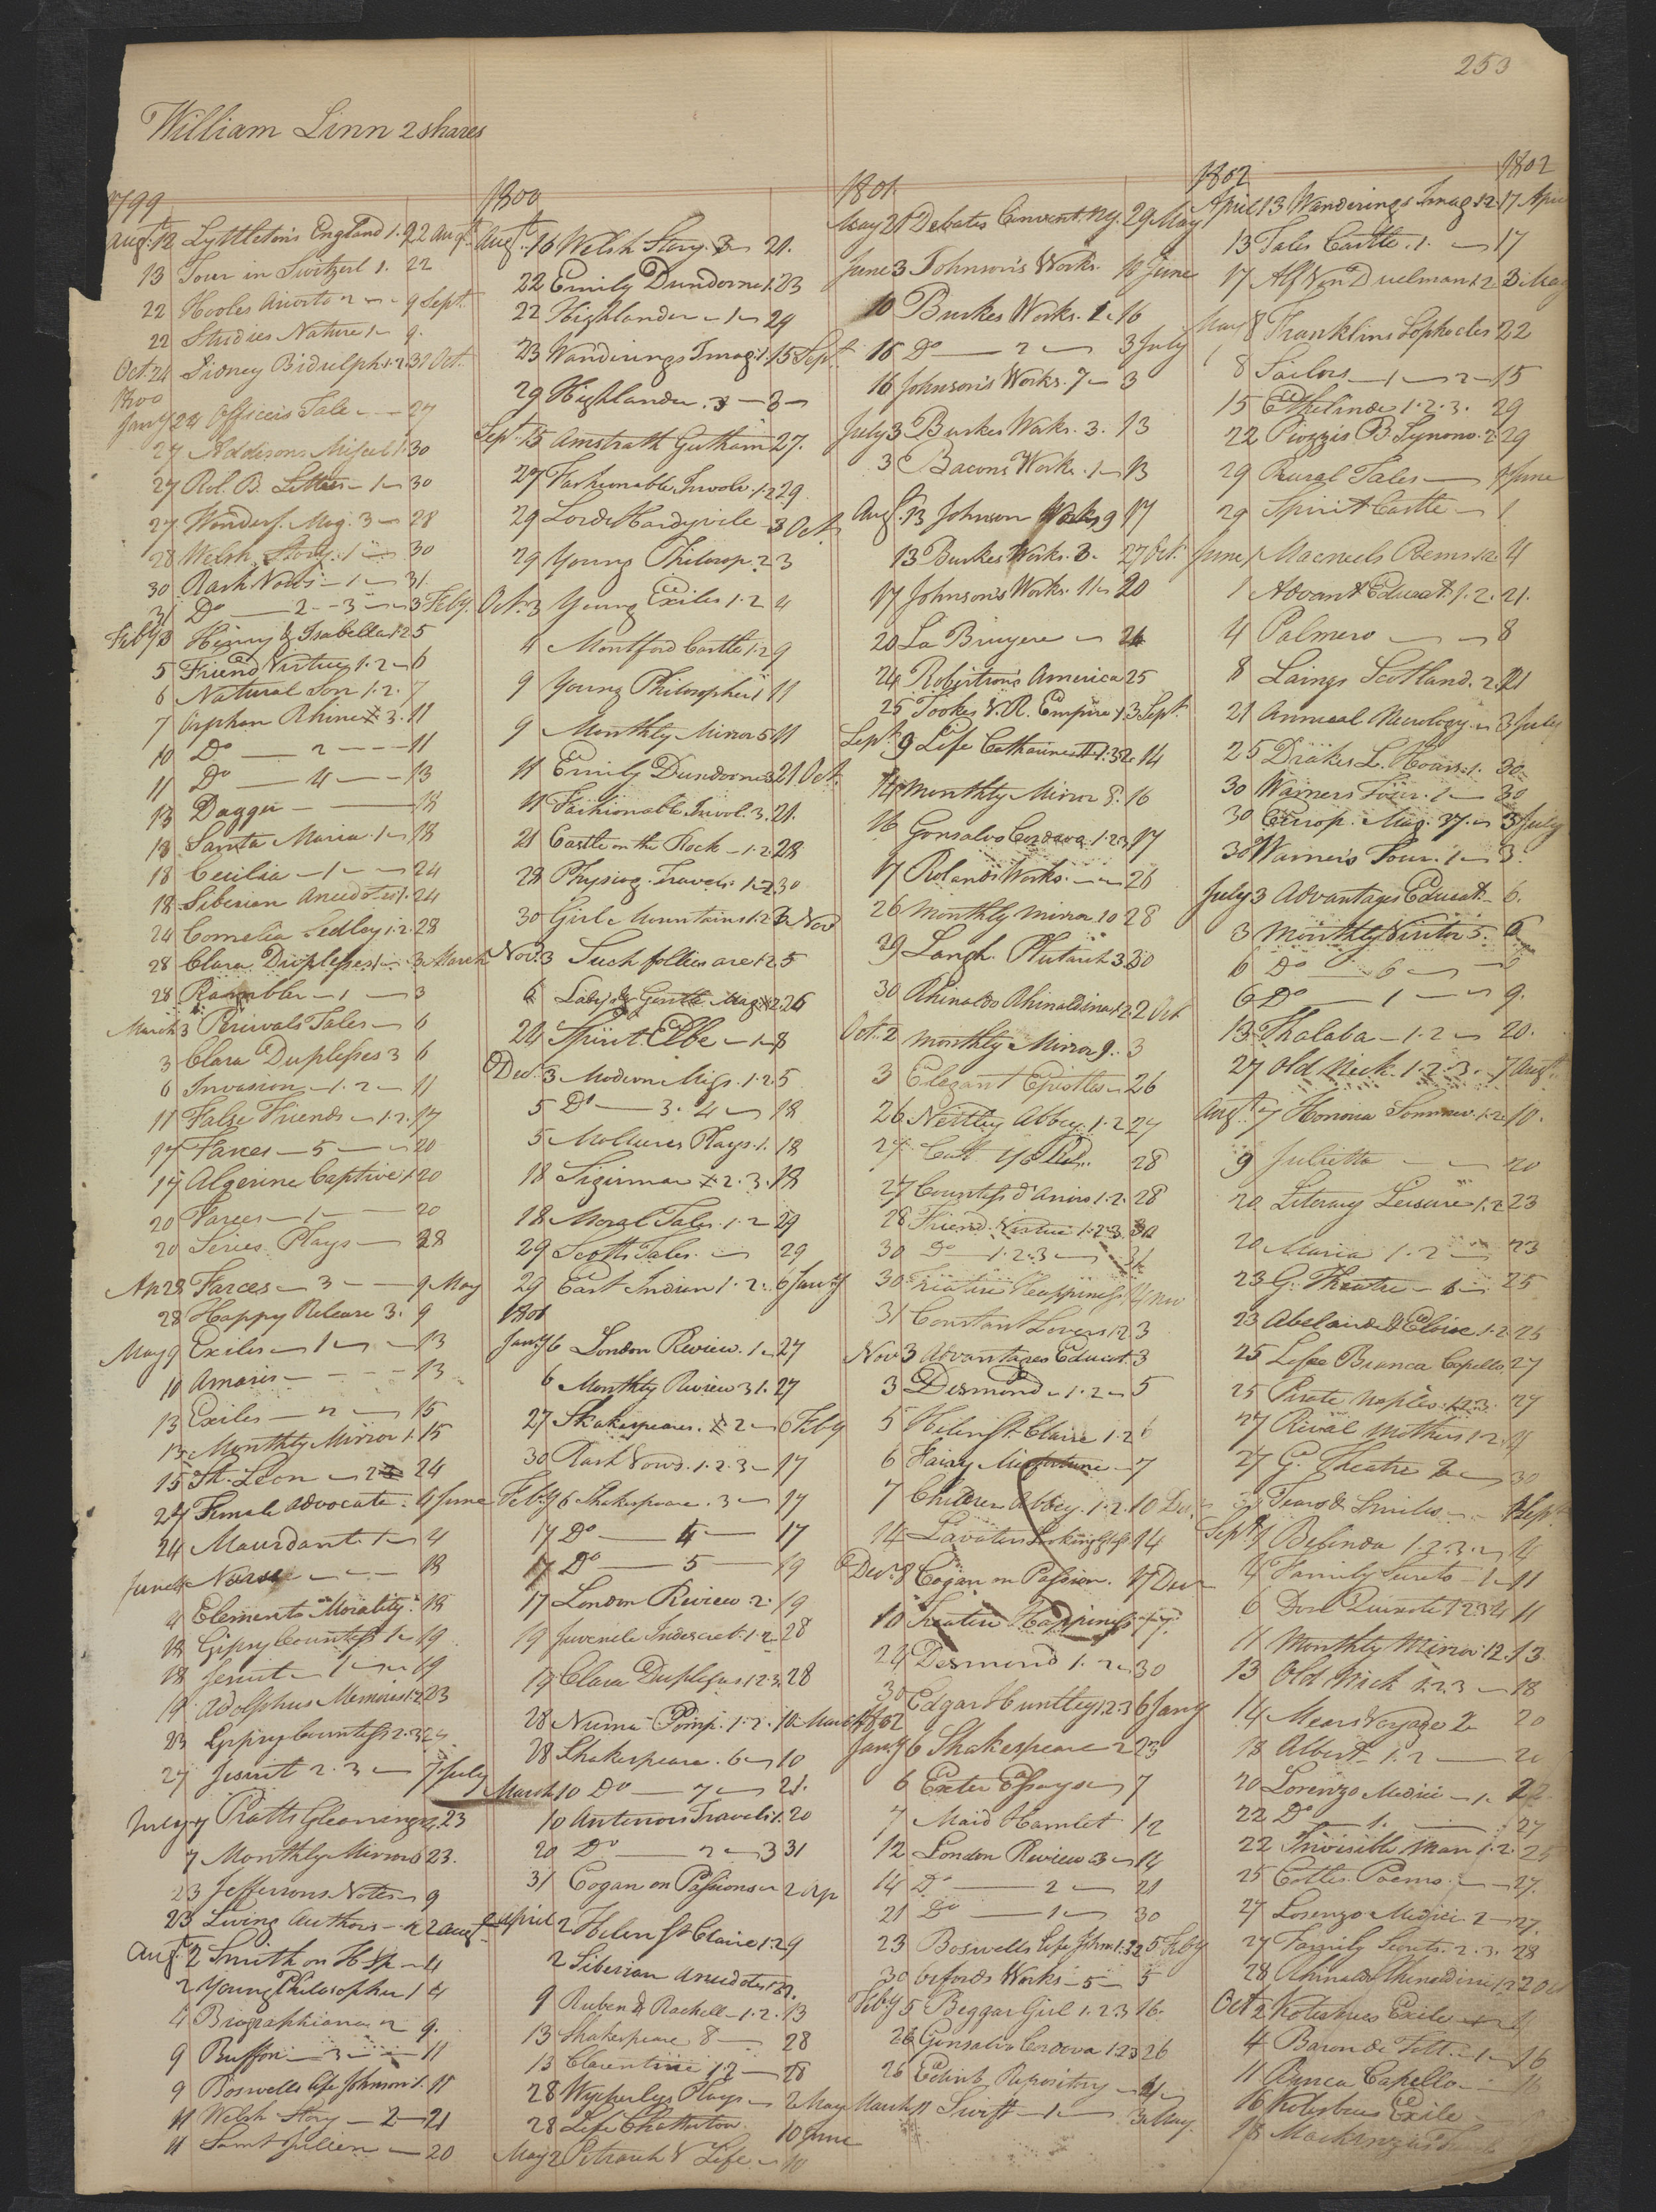 253
William Linn 2 shares
1799
Augt. 12 Lyttleton's England 1. 2 22 Augt.
13 Tour in Switzerl 1. 22
22 Hooles Ariosto 2 9 Sept.
22 Studies Nature 1 9.
Oct. 24 Sidney Bidulph 1.2 31 Oct.
1800
Jany 24 Officers Tale 27
27 Addisons Miscel 1. 30
27 Rol. B. Letters 1 30
27 Wonderf. Mag. 3 28
28 Welsh Story. 1 30
30 Rash Vows 1 31.
31 Do 2 3 3 Feby.
Feby 3 Henry & Isabella 1.2 5
5 Friend Virtue 1.2 6
6 Natural Son 1.2. 7
7 Orphan Rhine 3. 11
10 Do 2 11
11 Do 4 13
13 Dagger 18
13 Santa Maria 1 18
18 Cecilia 1 24
18 Siberian Anecdotes 1. 24
24 Cornelia Sedley 1.2. 28
28 Clara Duplesses 1 3 March
28 Rambler 1 3
March 3 Percivals Tales 6
3 Clara Duplesses 3 6
6 Invasion 1.2 11
11 False Friends 1.2. 17
17 Farces 5 20
17 Algerine Captive 1 20
20 Farces 1 20
20 Series Plays 28
Ap 28 Farces 3 9 May
28 Happy Release 3. 9
May 9 Exiles 1 13
10 Amaris 13
13 Exiles 2 15
13 Monthly Mirror 1. 15
15 St. Leon 2 24
24 Female Advocate. 4 June
24 Mourdant. 1 4
June 4 Norse 18
4 Elements Morality. 18
18 Gipsy Countess 1 19
18 Jesuit 1 19
19 Adolphus Memoirs 1.2 23
23 Gipsy Countess 2.3 27
27 Jesuit 2.3 7 July
July 7 Pratts Gleanings 2. 23
7 Monthly Mirror 6 23.
23 Jeffersons Notes 9
23 Living Authors 2 Augt.
Augt. 2 Smith on H Sp. 4
2 Young Philosopher 1 4
4 Biographiana 2 9.
9 Buffon 3 11
9 Boswells Life Johnson 1. 11
11 Welsh Story 2 21
11 Saint Julien 20
1800
Augt. 16 Welsh Story. 3 21.
22 Emily Dundorne 1. 23
22 Highlander 1 29
23 Wanderings Imag. 1. 15 Sept.
29 Highlander. 3 3
Sept. 15 Amstrath Gutham 27.
27 Fashionable Involv. 1.2 29
29 Lord Hardyvile 3 Oct.
29 Young Philosop. 2 3
Oct. 3 Young Exiles 1.2 4
4 Montford Castle 1.2 9
9 Young Philosopher 1 11
9 Monthly Mirror 5 11
11 Emily Dundorne 3 21 Oct.
11 Fashionable Invol. 3. 21.
21 Castle on the Rock 1.2. 28
28 Physiog. Travels 1.2 30
30 Girl Mountains 1.2 3 Nov
Nov. 3 Such follies are 1.2 5
6 Lady's & Gentle. Mag. 2 26
24 Spirit Elbe 1 8
Dec. 3 Modern Miss. 1.2 5
5 Do 3. 4 18
5 Molieres Plays. 1. 18
18 Sigismar 2. 3. 18
18 Moral Tales. 1.2 29
29 Scotts Tales. 29
29 East Indian 1.2. 6 Jany
1801
Jany 6 London Review. 1 27
6 Monthly Review 31. 27
27 Shakespeare. 2 6 Feby
30 Rash Vows. 1.2.3 17
Feby 6 Shakespeare. 3 17
17 Do 4 17
17 Do 5 19
17 London Review 2. 19
19 Juvenile Indiscret. 1.2 28
19 Clara Duplessis 1 2.3 28
28 Numa Pomp. 1.2. 10 March
28 Shakespeare. 6 10
March 10 Do 7 21.
10 Antenors Travels 1. 20
20 Do 2 3 31
31 Cogan on Passions 2 Ap
April 2 Helen St Claire 1.2 9
2 Siberian Anecdotes
9 Ruben & Rachell 1.2. 13
13 Shakespeare. 8 28
13 Clarentine 1.2 28
28 Wycherleys Plays 2 May
28 Life Chatterton 10 June
May 2 Petrarch's Life 10
1801.
May 21 Debates Convent. Ny. 29 May
June 3 Johnson's Works. 10 June
10 Burkes Works. 1. 16
16 Do 2 3 July
16 Johnson's Works. 7 3
July 3 Burkes Works. 3. 13
3 Bacons Works. 1 13
Augt. 13 Johnson Works 9 17
13 Burkes Works. 3. 27 Oct.
17 Johnson's Works. 11 20
20 La Bruyere 24
24 Robertson's America 25
25 Tookes V. R. Empire 1 3 Sept.
Sept. 9 Life Catharine II 1.3.2. 14
14 Monthly Mirror 8. 16
16 Gonsalvo Cordova 1.2.3 17
17 Rolands Works. 26
26 Monthly Mirror 10 28
29 Langh. Plutarch 3 30
30 Rhinaldo Rhinaldina 1.2. 2 Oct
Oct. 2 Monthly Mirror 9. 3
3 Elegant Epistles 26
26 Nettley Abbey. 1.2 27
27 28
27 Countess d'Aniro 1.2. 28
28 Friend Virtue 1.2.3 30
30 Do 1.2.3 31
30 Treatise Happiness 4 Nov
31 Constant Lovers 1.2 3
Nov 3 Advantages Educat. 3
3 Desmond 1.2 5
5 Helen St. Claire 1.2 6
6 Fairy Misfortune 7
7 Children Abbey. 1.2. 10 Dec.
14 Lavaters Looking Glass 14
Dec. 8 Cogan on Passion. 17 Dec
10 Treatise Happiness 17.
24 Desmond 1.2. 30
30 Edgar Huntley 1 2.3 6 Jany
1802
Jany 6 Shakespeare 2 23
6 Exeter Essays 7
7 Maid Hamlet 12
12 London Review 3 14
14 Do 2 21
21 Do 1 30
23 Boswells Life John 1.3.2 5 Feby
30 Orfords Works 5 5
Feby 5 Beggar Girl 1.2.3 16.
26 Gonsalvo Cordova 1 2 3 26
26 Edinb. Repository
March 11 Swift 1 3 May.
1802 1802
April 13 Wanderings Imag 1.2 17 April
13 Tales Castle. 1. 17
17 Alf Von Duelman 1.2 3 May
May 8 Franklins Sophocles 22
8 Sailors 1 2 15
15 Ethelinde 1.2.3. 29
22 Piozzis B. Synono. 2 29
29 Rural Tales 4 June
29 Spirit Castle 1
June 1 Macneels Poems 1.2. 4
1 Advant Educat. 1.2. 21.
4 Palmero 8
8 Laings Scotland. 2. 21
21 Annual Necrology. 3 July
25 Drakes L. Hours. 1. 30
30 Warners Tour. 1 30
30 Europ. Mag. 37. 3 July
30 Warners Tour. 1 3.
July 3 Advantages Educat 6.
3 Monthly Visitor 5. 6
6 Do 6
6 Do 1 9.
13 Thalaba 1.2 20.
27 Old Nick. 1.2.3. 7 Augt.
Augt. 7 Honoria Sommerv. 1.2. 10.
9 Julietta 20
20 Literary Leisure 1.2 23
20 Maria 1.2 23
23 G. Theatre 1 25
23 Abelaird & Eloise 1.2 25
25 Life Bianca Capello 27
25 Pirate Naples. 1.2.3. 27
27 Rival Mothers 1.2.
27 G. Theatre 2 30
Tears & Smiles Sept.
Sept. 1 Belinda 1.2.3. 4
4 Family Secrets 1 11
6 Don Quixote 1 2 3 4 11
11 Monthly Mirror 12. 13
13 Old Nick 1.2.3 18
14 Mears Voyage 2 20
18 Albert 1.2 20
20 Lorenzo Medici 1. 22
22 Do 1. 27
22 Invisible Man 1.2. 25
25 Cottles Poems 27.
27 Lorenzo Medici. 2 27.
27 Family Secrets. 2.3. 28
28 Rhinaldo Rhinaldini 1.2 2 Oct
Oct 2 Kotzebues Exile
4 Baron de Tott. 1 16
11 Bianca Capello 16
16 Kotzebues Exile
18 Mackenzies